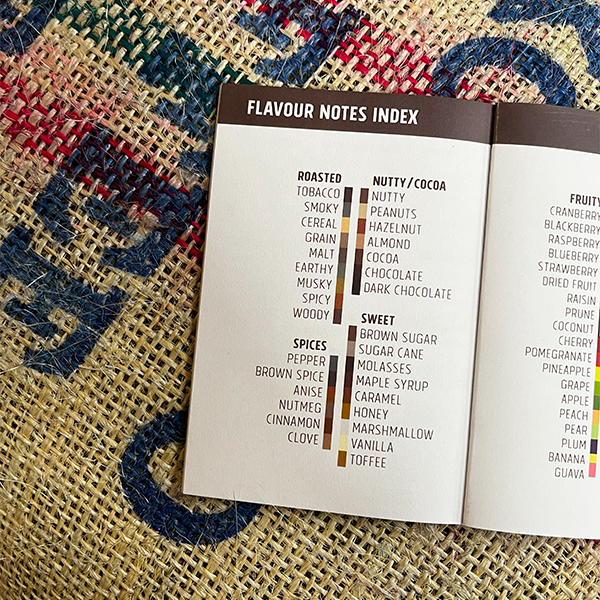 FLAVOUR NOTES INDEX
ROASTED
TOBACCO
SMOKY
CEREAL
GRAIN
MALT
EARTHY
MUSKY
SPICY
WOODY
SPICES
PEPPER
BROWN SPICE
ANISE
NUTMEG
CINNAMON
CLOVE
NUTTY/COCOA
NUTTY
PEANUTS
HAZELNUT
ALMOND
COCOA
CHOCOLATE
DARK CHOCOLATE
SWEET
BROWN SUGAR
SUGAR CANE
MOLASSES
MAPLE SYRUP
CARAMEL
HONEY
MARSHMALLOW
VANILLA
TOFFEE
FRUITY
CRANBERRY
BLACKBERRY
RASPBERRY
BLUEBERRY
STRAWBERRY
DRIED FRUIT
RAISIN
PRUNE
COCONUT
CHERRY
POMEGRANATE
PINEAPPLE
GRAPE
APPLE
PEACH
PEAR
PLUM
BANANA
GUAVA